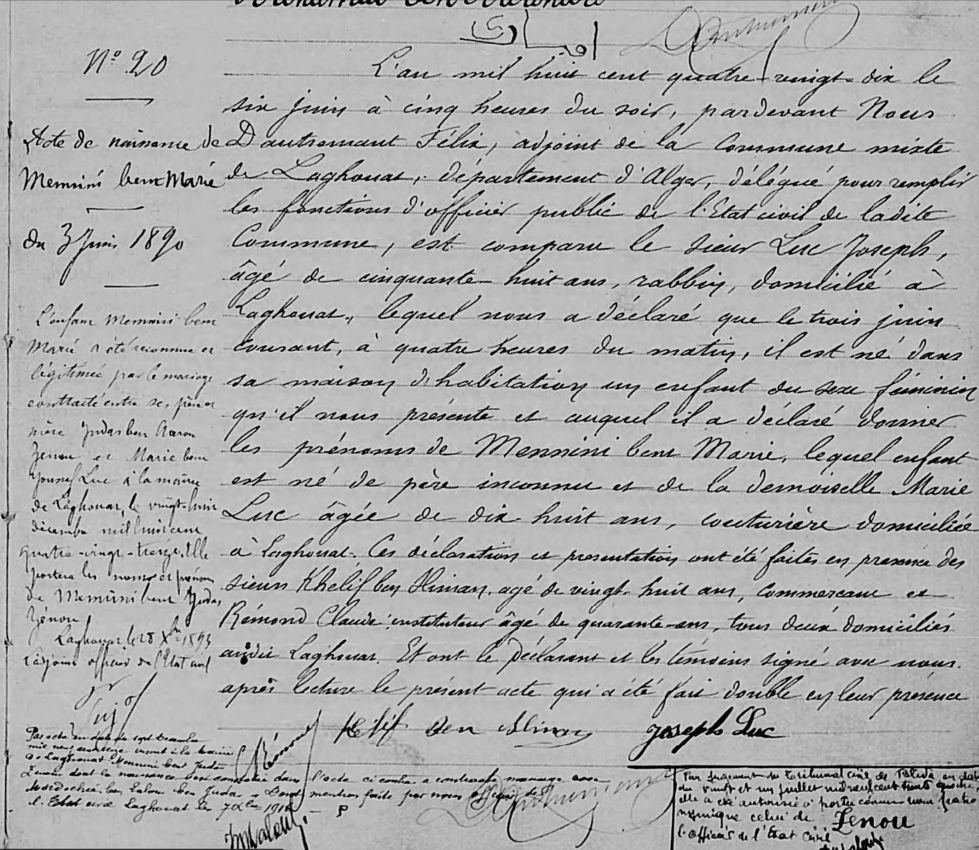 N° 20
Acte de naissance de
Memnini bent Marie
du 3 Juin 1890
L'enfant Memnini bent
Marie a été reconnue et
légitimée par le mariage
contracté entre ses père et
mère Judas ben Aaron
Zenou et Marie bent
Youssef Luc à la mairie
de Laghouat, le vingt-huit
décembre mil huit cent
quatre-vingt-treize. Elle
portera les noms et prénoms
de Memnini bent Judas
Zénou
Laghouat, le 28 Xbre 1893
L'adjoint officier de l'Etat civil
L'an mil huit cent quatre-vingt-dix le
six juin à cinq heures du soir, pardevant Nous
Dautremant Félix, adjoint de la Commune mixte
de Laghouat, département d'Alger, délégué pour remplir
les fonctions d'officier public de l'Etat civil de ladite
Commune, est comparu le sieur Luc Joseph,
âgé de cinquante-huit ans, rabbin, domicilié à
Laghouat, lequel nous a déclaré que le trois juin
courant, à quatre heures du matin, il est né dans
sa maison d'habitation un enfant du sexe féminin
qu'il nous présente et auquel il a déclaré donner
les prénoms de Memnini bent Marie, lequel enfant
est né de père inconnu et de la demoiselle Marie
Luc âgée de dix huit ans, couturière domiciliée
à Laghouat. Ces déclarations et présentation ont été faites en présence des
sieurs Khelif ben Sliman, agé de vingt-huit ans, commerçant et
Rémond Claude instituteur âgé de quarante-ans, tous deux domiciliés
audit Laghouat. Et ont le déclarant et les témoins signé avec nous.
après lecture le présent acte qui a été fait double en leur présence
Joseph Luc
Par acte en date du sept
mil neuf cent inscrit à la mairie
de Laghouat Memnini bent Judas
Zenou dont la naissance est constatée dans l'acte ci contre a contracté mariage avec
Mardochée ben Salem ben Juda. Dont mention faite par nous officier de
l'Etat civil Laghouat le 7
Par jugement du Tribunal civil de Blida en date
du vingt et un juillet mil neuf cent trente quatre,
elle a été autorisée à porter comme nom patro
nymique celui de Zenou
l'officier de l'Etat Civil